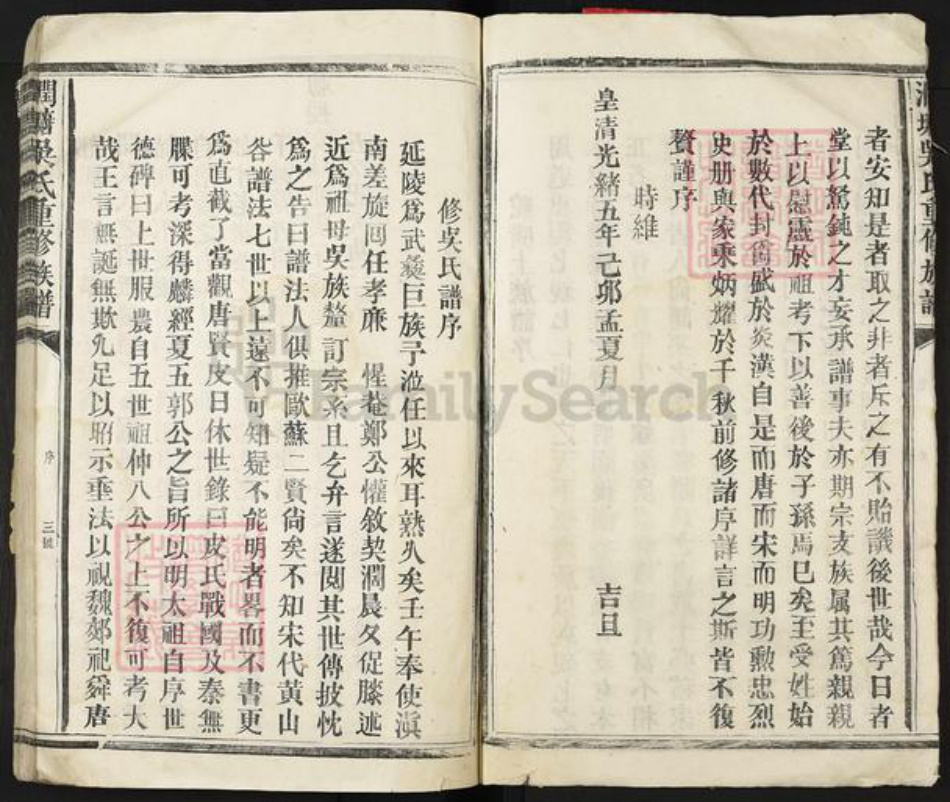 者安知是者取之非者斥之有不貽譏後世哉今日者
堂以駑鈍之才妄承譜事夫亦期宗支族属其篤親親
上以慰靈於祖考下以善後於子孫焉已矣至受姓始
於數代封爵盛於炎漢自是而唐而宋而明功勳忠烈
史册與家乘炳耀於千秋前修諸序詳言之斯皆不復
贅謹序
時維
皇清光緒五年己卯孟夏月 吉旦
吳氏重修族譜
修吳氏譜序
延陵爲武彝巨族予涖任以來耳熟久矣壬午奉使滇
南差旋囘任孝亷 惺菴鄭公懽敘契濶晨夕促膝述
近爲祖母吳族釐訂宗系且乞弁言遂閱其世傳披忱
爲之告曰譜法人俱推歐蘇二賢尙矣不知宋代黄山
谷譜法七世以上遠不可知疑不能明者畧而不書更
爲直截了當觀唐賢皮日休世錄曰皮氏戰國及秦無
牒可考深得麟經夏五郭公之旨所以明太祖自序世
德碑曰上世服農自五世祖仲八公之上不復可考大
哉王言無誕無欺允足以昭示垂法以視魏郊祀舜唐
吳氏重修族譜
序
三號
FamilySearch